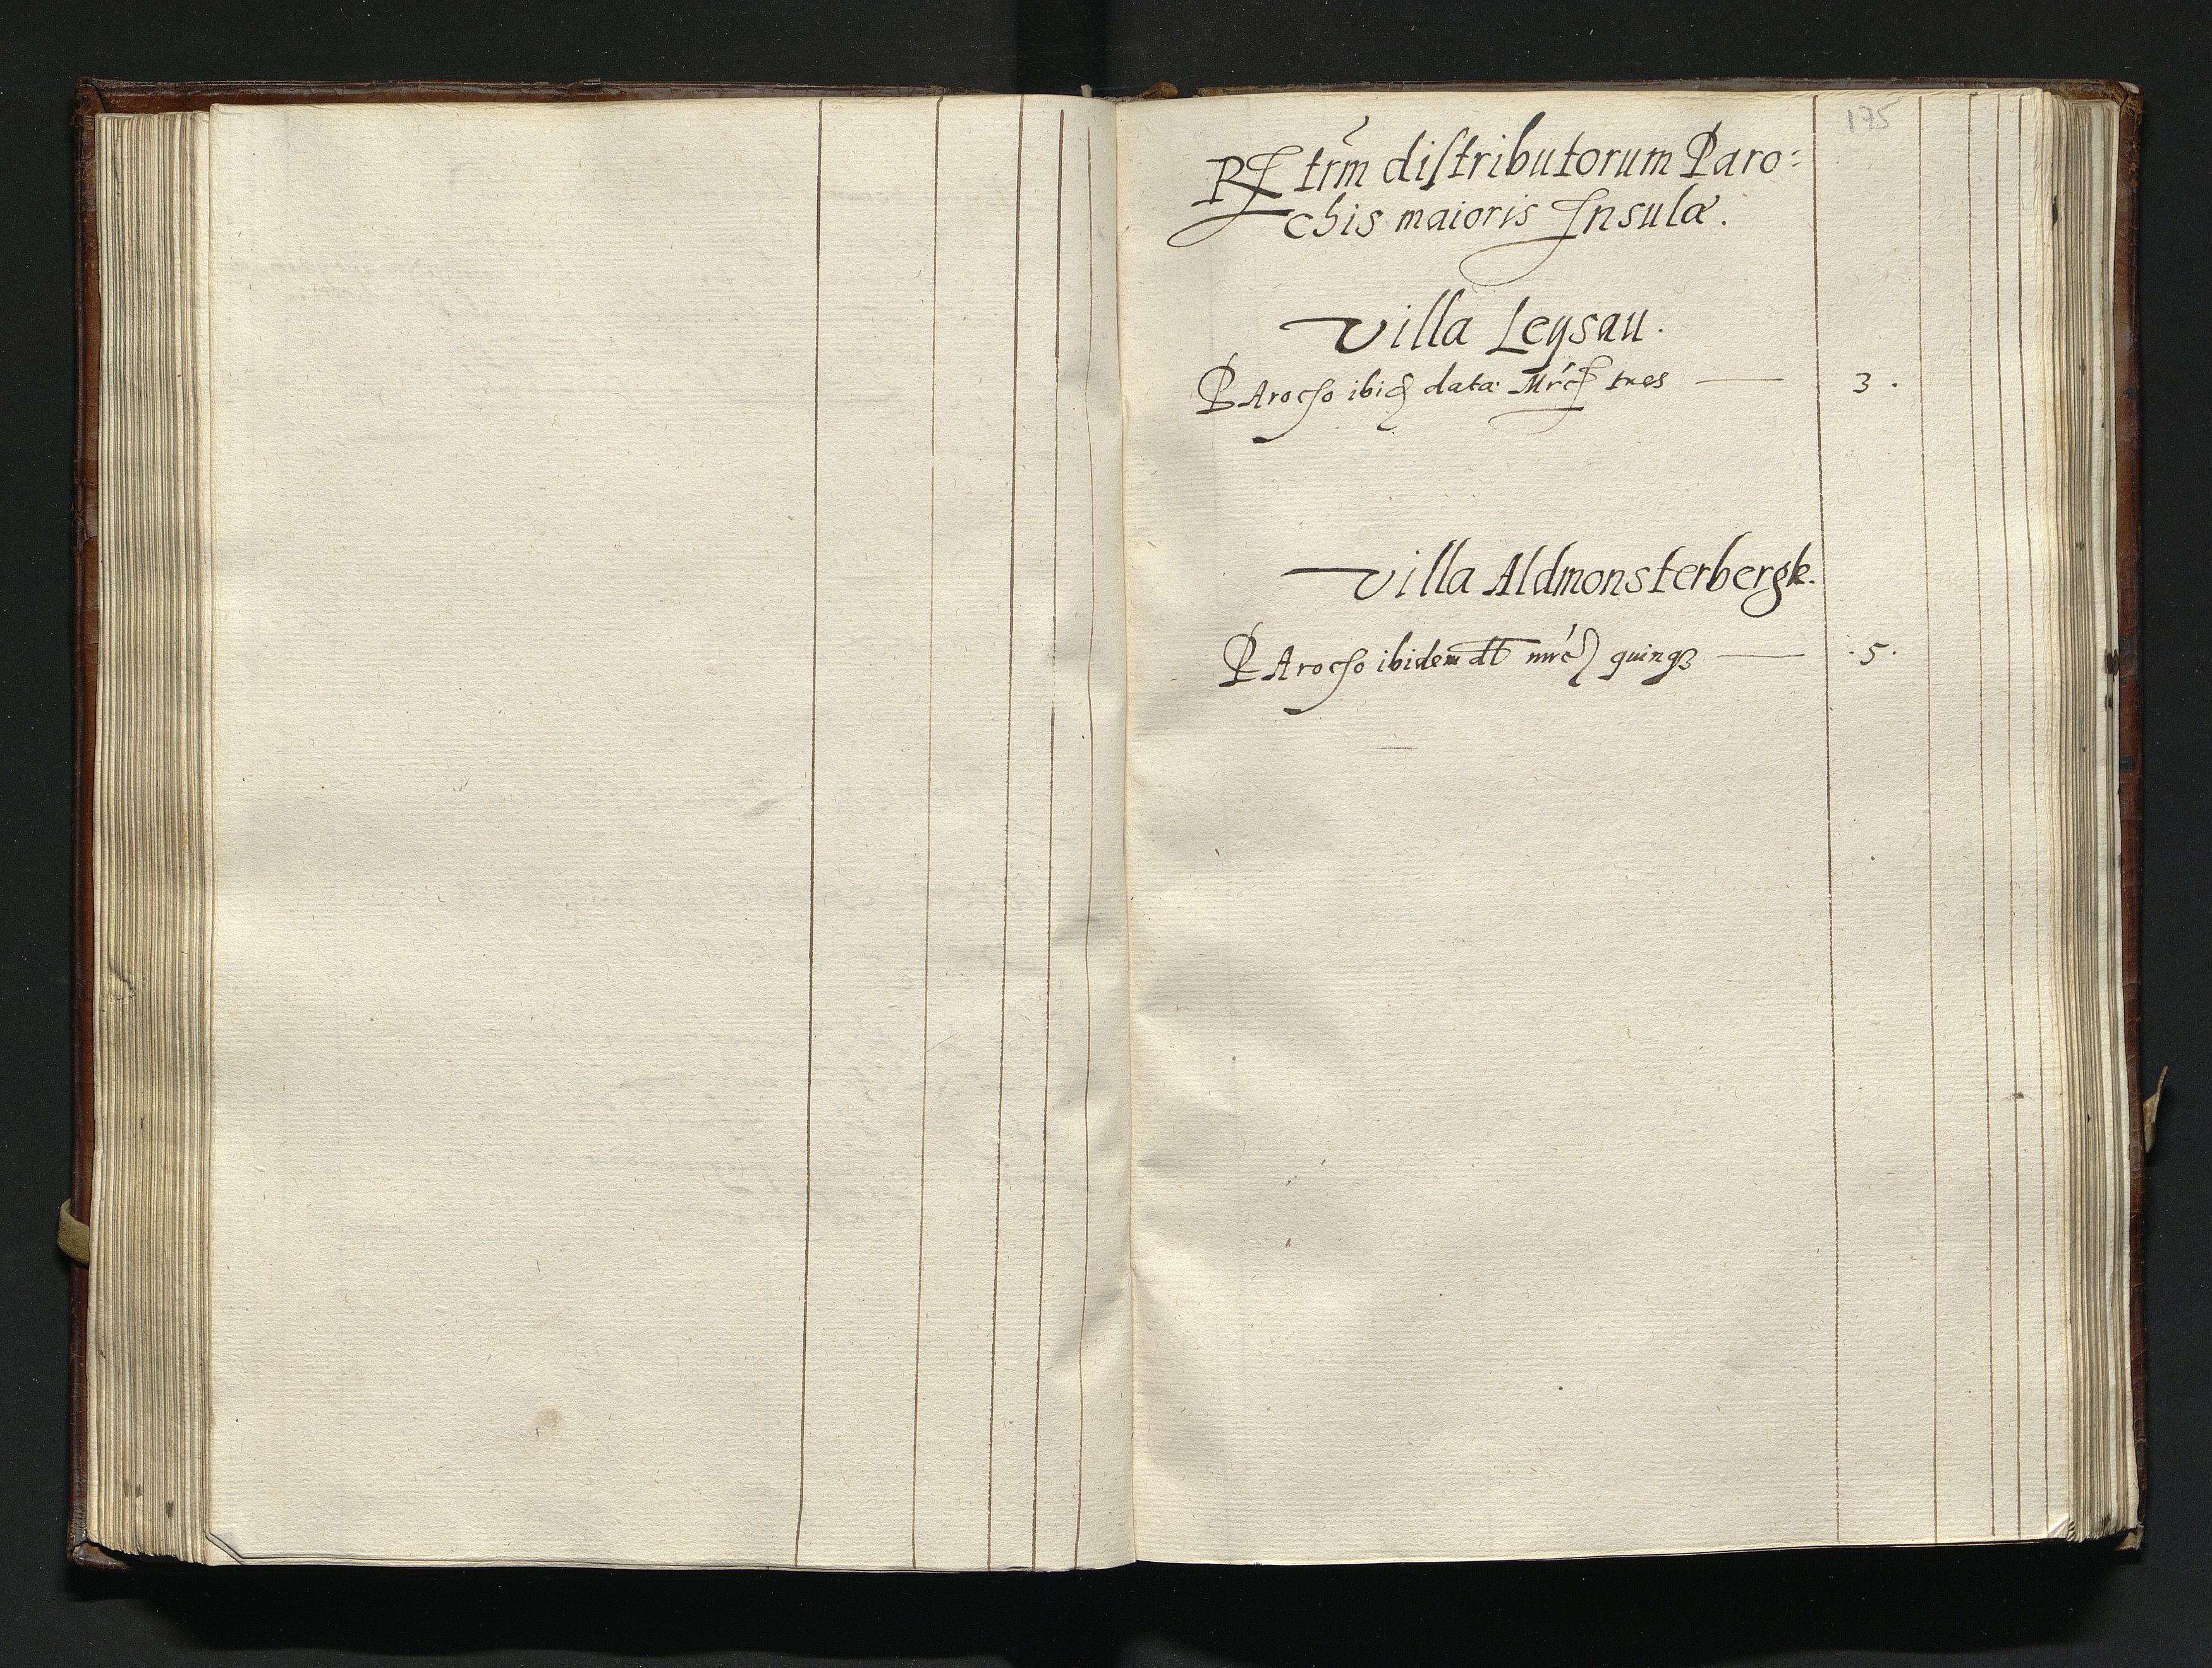 175
Rẽtrm̃ distributorum Paro:
chis maioris Insulæ.
Villa Leysau.
PArocho ibid data Mrc tres — 3.
Villa Aldmonsterbergk.
PArocho ibidem dt mrc quinqꝫ — .5.